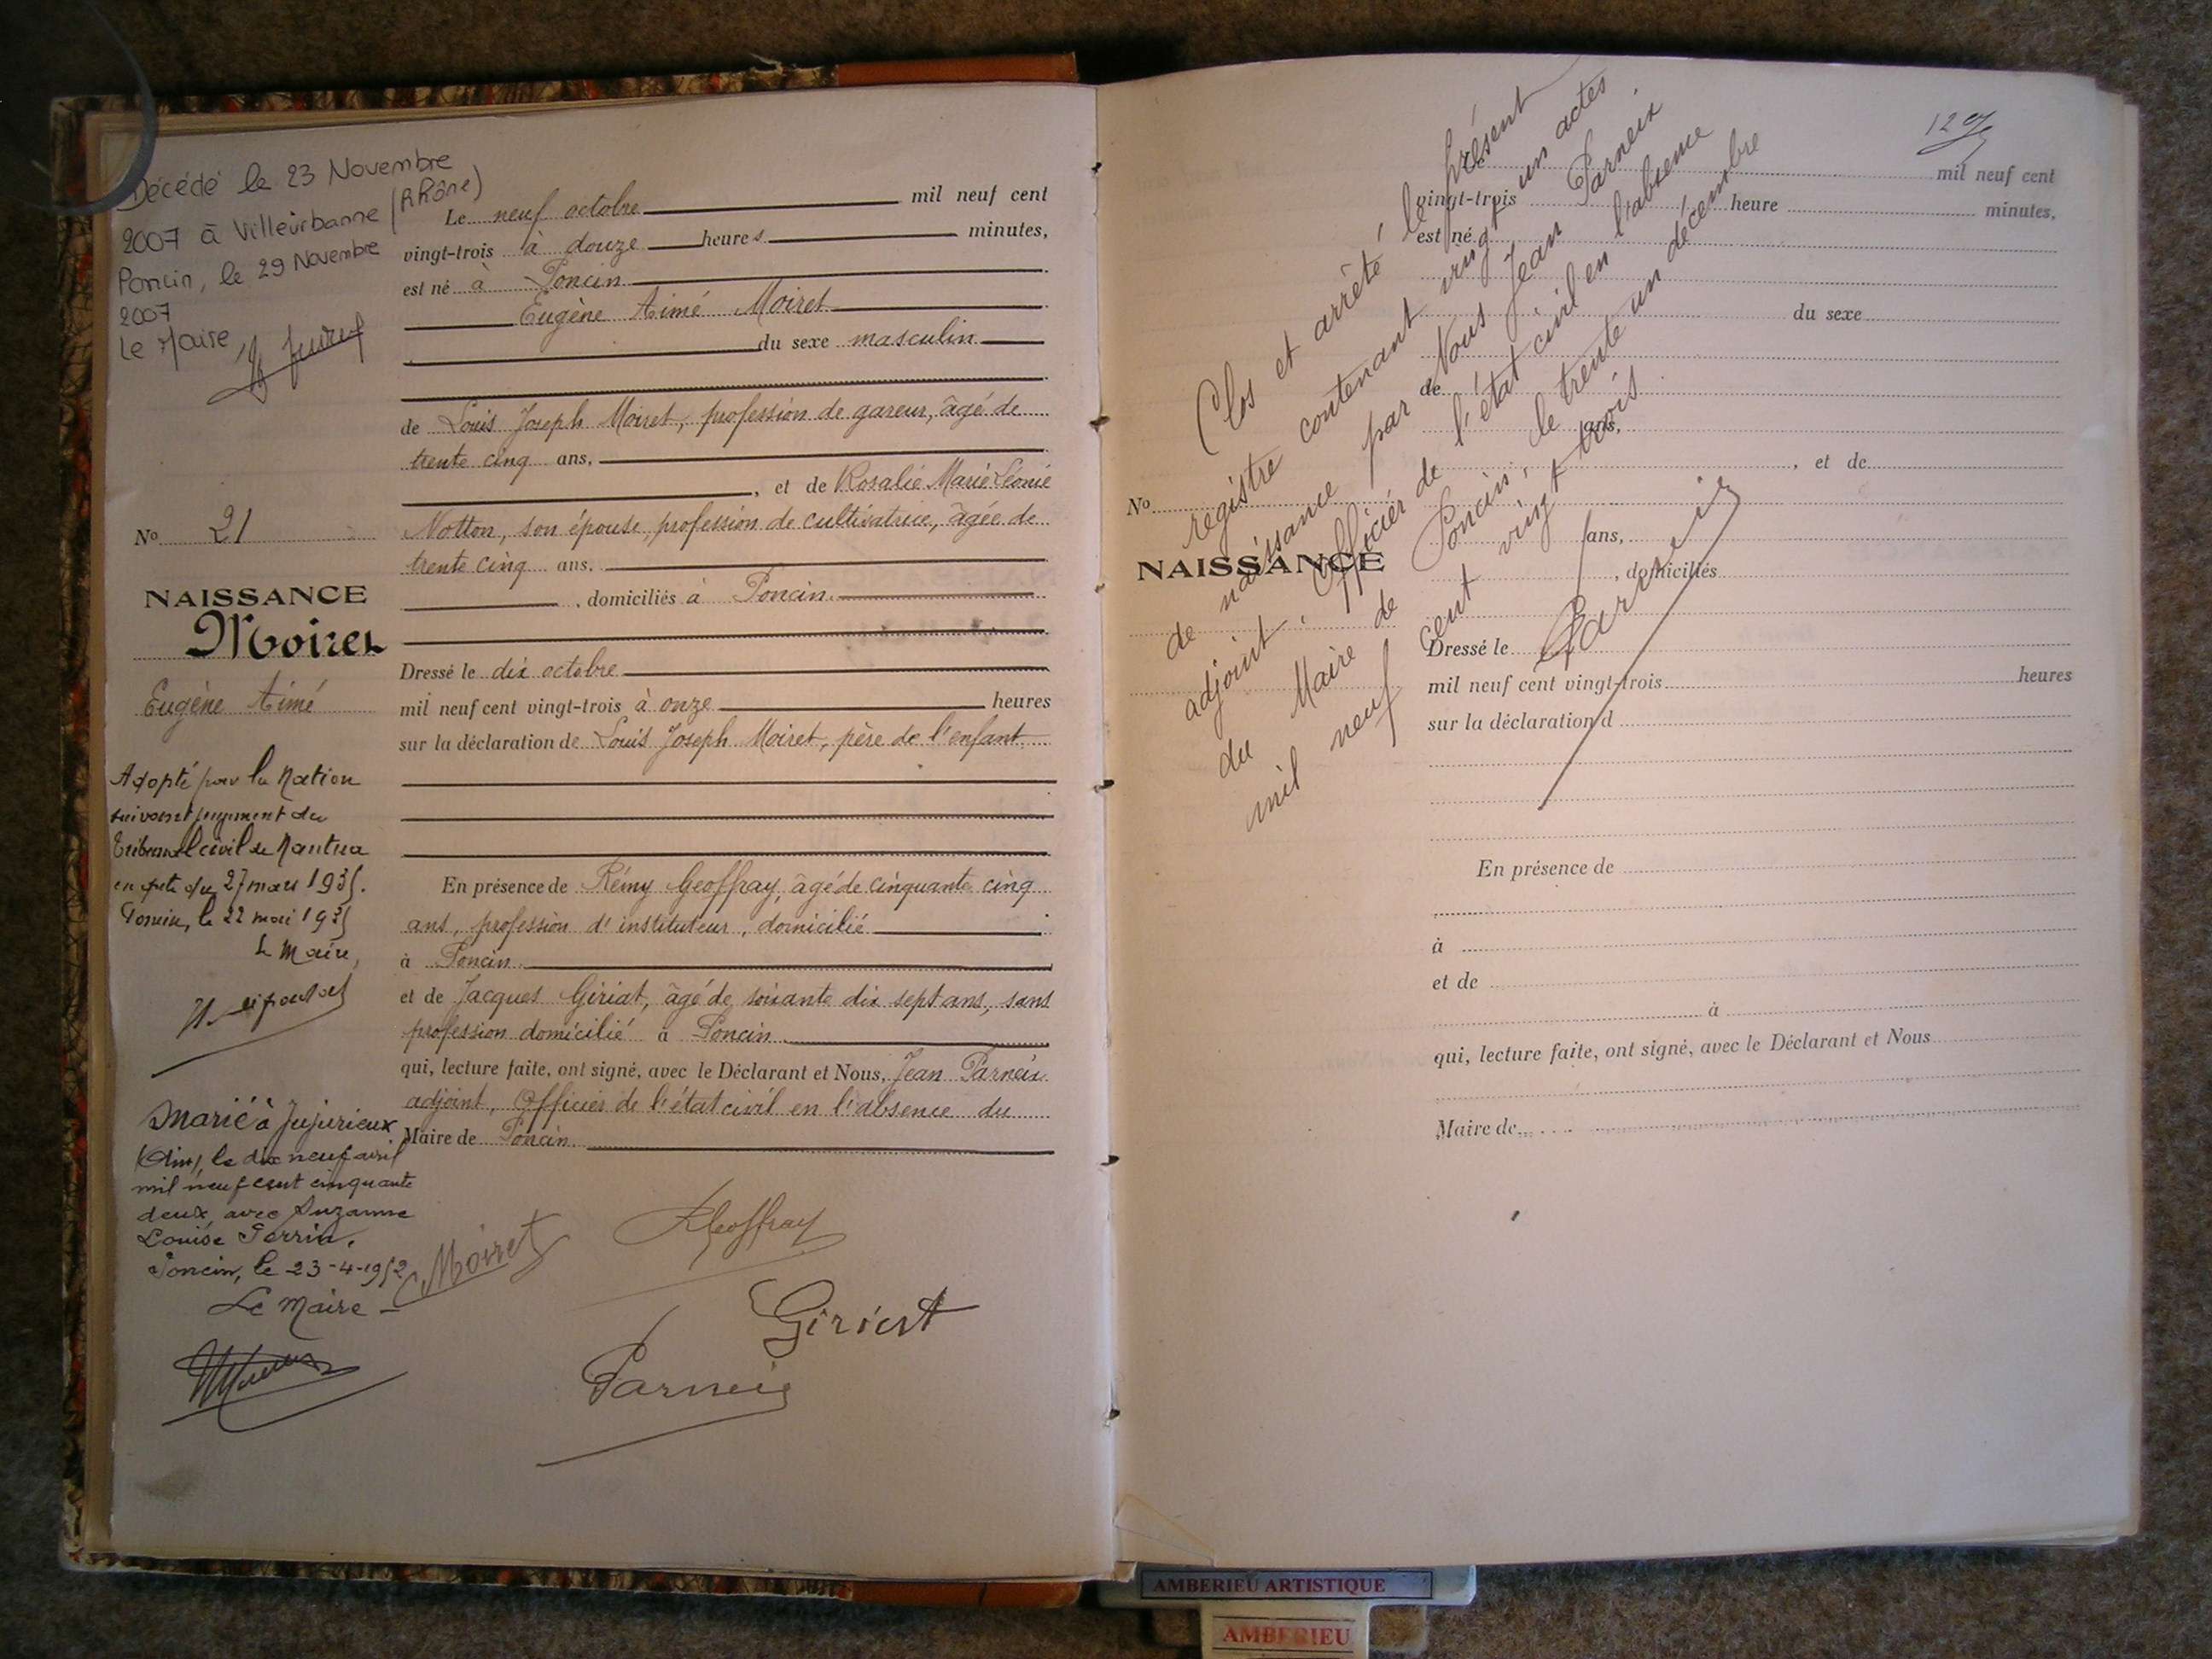 Décédé le 23 Novembre
2007 à Villeurbanne (Rhône)
Poncin, le 29 Novembre
2007
Le Maire,
No 21
NAISSANCE
Moiret
Eugène Aimé
Adopté par la Nation
suivant jugement du
Tribunal civil de Nantua
en date du 27 mars 1935.
Poncin, le 22 mai 1935
Le Maire,
Marié à Jujurieux
(Ain), le dix neuf avril
mil neuf cent cinquante
deux, avec Suzanne
Louise Perrin.
Poncin, le 23-4-1952
Le Maire -
Le neuf octobre mil neuf cent
vingt-trois à douze heures minutes,
est né à Poncin
Eugène Aimé Moiret
du sexe masculin
de Louis Joseph Moiret, profession de gareur, âgé de
trente cinq ans,
, et de Rosalie Marie Léonie
Notton, son épouse, profession de cultivatrice, âgée de
trente cinq ans,
, domiciliés à Poncin.
Dressé le dix octobre
mil neuf cent vingt-trois à onze heures
sur la déclaration de Louis Joseph Moiret, père de l'enfant.
En présence de Rémy Geoffray, âgé de cinquante cinq
ans, profession d'instituteur, domicilié
à Poncin
et de Jacques Giriat, âgé de soixante dix sept ans, sans
profession domicilié à Poncin
qui, lecture faite, ont signé, avec le Déclarant et Nous, Jean Parneix
adjoint, Officier de l'état civil en l'absence du
Maire de Poncin.
Moiret
RGeoffray
Giriat
Parneix
129
Clos et arrêté le présent
registre contenant vingt un actes
de naissance par Nous Jean Parneix
adjoint, Officier de l'état civil en l'absence
du Maire de Poncin, le trente un décembre
mil neuf cent vingt trois.
Parneix
mil neuf cent
vingt-trois heure minutes,
est né
du sexe
de
ans,
, et de
No
ans,
NAISSANCE
, domiciliés
Dressé le
mil neuf cent vingt-trois heures
sur la déclaration d
En présence de
à
et de
à
qui, lecture faite, ont signé, avec le Déclarant et Nous
Maire de
AMBERIEU ARTISTIQUE
AMBERIEU